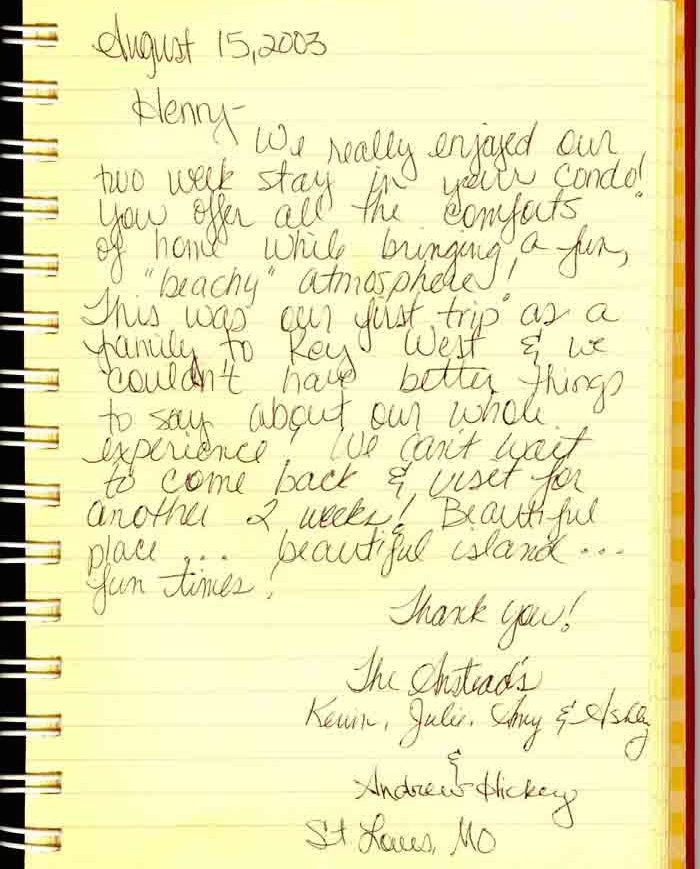 August 15, 2003
Henny-
We really enjoyed our
two week stay in your condo!
You offer all the comforts
of home while bringing a fun,
"beachy" atmosphere!
This was our first trip as a
family to Key West & we
couldn't have better things
to say about our whole
experience! We can't wait
to come back & visit for
another 2 weeks! Beautiful
place ... beautiful island ...
fun times!
Thank you!
The Anstead's
Kevin, Julie, Amy & Ashley
&
Andrew Hickey
St Louis, MO